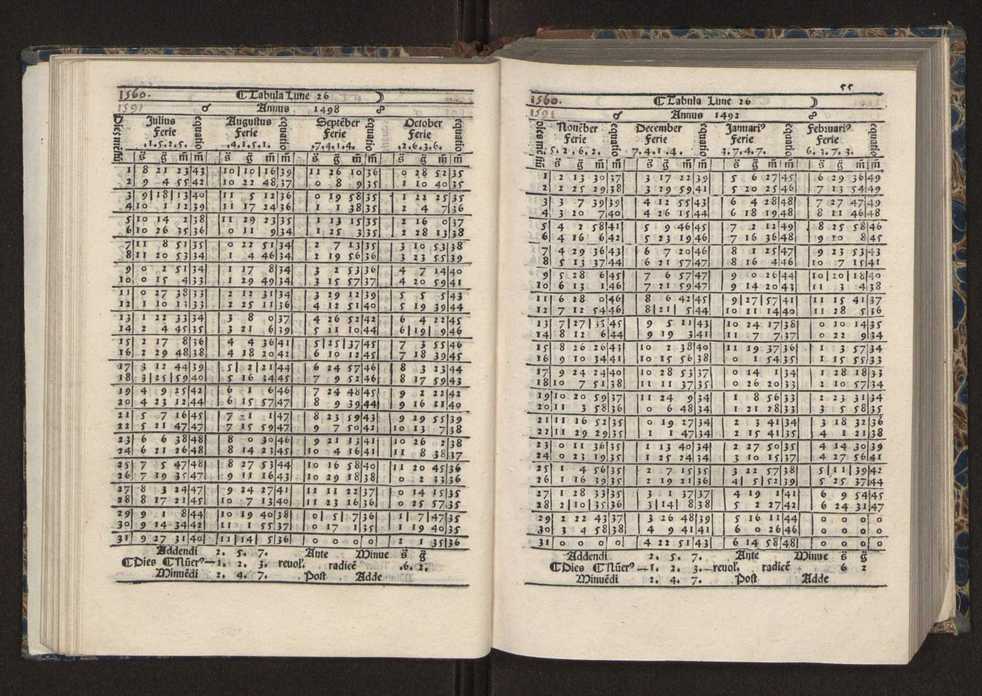 1560. ☾Tabula Lune 26
1591 ♂ Annus 1498 ☍
Dies mẽsis Julius equatio Augustus equatio Septẽber equatio October equatio
Ferie Ferie Ferie Ferie
.1.5.2.5. .4.1.5.1. .7.4.1.4. .2.6.3.6.
s̃ g̃ m̃ m̃ s̃ g̃ m̃ m̃ s̃ g̃ m̃ m̃ s̃ g̃ m̃ m̃
1 8 21 23 43 10 10 16 39 11 26 10 36 0 28 52 35
2 9 4 55 42 10 22 48 37 0 8 9 35 1 10 40 35
3 9 18 13 40 11 5 12 36 0 19 58 35 1 22 25 35
4 10 1 12 39 11 17 24 36 1 1 38 35 2 4 7 36
5 10 14 2 38 11 29 23 35 1 13 15 35 2 16 0 37
6 10 26 35 36 0 11 9 34 1 25 3 35 2 28 13 38
7 11 8 51 35 0 22 51 34 2 7 13 35 3 10 53 38
8 11 20 53 34 1 4 46 34 2 19 56 36 3 23 55 39
9 0 2 51 34 1 17 8 34 3 2 53 36 4 7 14 40
10 0 15 4 33 1 29 49 34 3 15 57 37 4 20 59 41
11 0 27 38 33 2 12 31 34 3 29 12 39 5 5 5 43
12 1 10 33 33 2 25 11 36 4 12 51 40 5 19 39 44
13 1 22 33 34 3 8 0 37 4 26 52 42 6 4 22 45
14 2 4 45 35 3 21 6 39 5 11 10 44 6 19 9 46
15 2 17 8 36 4 4 36 41 5 25 37 45 7 3 55 46
16 2 29 48 38 4 18 20 42 6 10 12 45 7 18 39 45
17 3 12 44 39 5 2 21 44 6 24 57 46 8 3 23 44
18 3 25 59 40 5 16 34 45 7 9 52 46 8 17 59 43
19 4 9 25 42 6 1 6 46 7 24 48 45 9 2 22 42
20 4 23 11 44 6 15 57 47 8 9 39 44 9 16 21 40
21 5 7 16 45 7 1 1 47 8 23 59 43 9 19 55 39
22 5 21 47 47 7 15 59 47 9 7 50 42 10 13 7 38
23 6 6 38 48 8 0 30 46 9 21 13 41 10 26 2 38
24 6 21 26 48 8 14 23 45 10 4 16 41 11 8 38 37
25 7 5 47 48 8 27 53 44 10 16 58 40 11 20 45 36
26 7 19 35 47 9 11 16 43 10 29 18 38 0 2 33 36
27 8 3 24 47 9 24 27 41 11 11 22 37 0 14 15 35
28 8 17 21 45 10 7 13 40 11 23 16 36 0 25 57 35
29 9 1 8 44 10 19 40 38 0 5 7 36 1 7 47 35
30 9 14 34 42 11 1 55 37 0 17 1 35 1 19 40 35
31 9 27 31 40 11 14 5 36 0 0 0 0 2 1 35 36
Addendi 2. 5. 7. Ante Minue s̃ g̃
☾Dies ☾Nũerꝰ—1. 2. 3. reuol. radicẽ .6. 2.
Minuẽdi 2. 4. 7. Post Adde
55
1560. ☾Tabula Lune 26
1591 ♂ Annus 1492 ☍
Dies mẽsis Nouẽber equatio December equatio Januariꝰ equatio Februariꝰ equatio
Ferie Ferie Ferie Ferie
5.2.6.2. 7.4.1.4. 3.7.4.7. 6.3.7.3.
s̃ g̃ m̃ m̃ s̃ g̃ m̃ m̃ s̃ g̃ m̃ m̃ s̃ g̃ m̃ m̃
1 2 13 30 37 3 17 22 39 5 6 27 45 6 29 36 49
2 2 25 29 38 3 29 59 41 5 20 25 46 7 13 54 49
3 3 7 39 39 4 12 55 43 6 4 28 48 7 27 47 49
4 3 20 7 40 4 26 15 44 6 18 19 48 8 11 46 48
5 4 2 58 41 5 9 46 45 7 2 12 49 8 25 58 46
6 4 16 6 42 5 23 19 46 7 16 36 48 9 10 8 45
7 4 29 36 43 6 7 20 46 8 1 25 47 9 23 53 43
8 5 13 37 44 6 21 57 47 8 16 4 46 10 7 15 41
9 5 28 6 45 7 6 57 47 9 0 26 44 10 20 18 40
10 6 13 1 46 7 21 59 47 9 14 20 43 11 3 4 38
11 6 28 0 46 8 6 42 45 9 27 57 41 11 15 41 37
12 7 12 54 46 8 21 5 44 10 11 14 40 11 28 5 36
13 7 27 35 45 9 5 11 43 10 24 17 38 0 10 14 35
14 8 12 6 44 9 19 3 41 11 7 7 37 0 22 9 34
15 8 26 26 43 10 2 38 40 11 19 37 36 1 3 57 34
16 9 10 34 41 10 15 56 38 0 1 54 35 1 15 55 33
17 9 24 24 40 10 28 53 37 0 14 1 34 1 28 18 33
18 10 7 51 38 11 11 37 35 0 26 20 33 2 10 57 34
19 10 20 59 37 11 24 9 34 1 8 56 33 2 23 31 34
20 11 3 58 36 0 6 48 34 1 21 28 33 3 5 58 35
21 11 16 52 35 0 19 27 34 2 3 41 34 3 18 32 36
22 11 29 29 35 1 1 47 34 2 15 41 35 4 1 21 38
23 0 11 36 35 1 13 40 34 2 27 50 35 4 14 30 39
24 0 23 19 35 1 25 24 35 3 10 15 37 4 27 56 41
25 1 4 56 35 2 7 15 35 3 22 57 38 5 11 39 42
26 1 16 39 35 2 19 21 36 4 5 52 39 5 25 37 44
27 1 28 33 35 3 1 37 37 4 19 1 41 6 9 54 45
28 2 10 35 36 3 14 8 38 5 2 27 42 6 24 31 47
29 2 22 43 37 3 26 48 39 5 16 11 44 0 0 0 0
30 3 4 58 38 4 9 41 41 6 0 26 46 0 0 0 0
31 0 0 0 0 4 22 51 43 6 14 58 48 0 0 0 0
Addendi 2. 5. 7. Ante Minue s̃ g̃
☾Dies ☾Nũerꝰ—1. 2. 3.—reuol. radicẽ 6 2
Minuẽdi 2. 4. 7. Post Adde